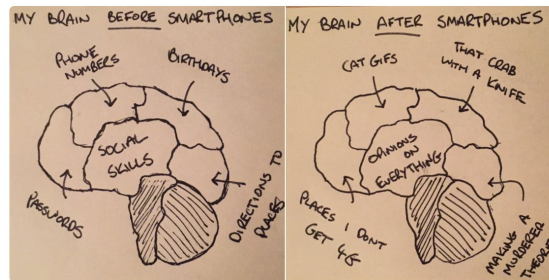 MY BRAIN BEFORE SMARTPHONES
PHONE
NUMBERS
BIRTHDAYS
SOCIAL
SKILLS
PASSWORDS
DIRECTIONS TO
PLACES
MY BRAIN AFTER SMARTPHONES
CAT GIFS
THAT CRAB
WITH A KNIFE
OPINIONS
ON
EVERYTHING
PLACES I DONT
GET 4G
MAKING A
MURDERER
THEORIES